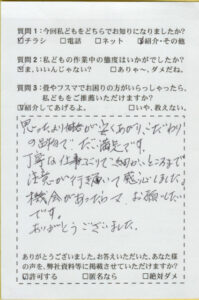 質問1：今回私どもをどちらでお知りになりましたか？
☑チラシ　□電話　□ネット　☑紹介・その他
質問2：私どもの作業中の態度はいかがでしたか？
☑ま、いいんじゃない？　□ありゃ〜、ダメだね。
質問3：畳やフスマでお困りの方がいらっしゃったら、
私どもをご推薦いただけますか？
☑紹介してあげるよ。　□いや、教えない。
思ったより価格が安くあがり、こだわり
の出来で大満足です。
丁寧な仕事ぶりで細かいところまで
注意が行き届いて感心しました。
機会があったらまたお願いしたい
です。
ありがとうございました。
ありがとうございました。お答えいただいた、あなた様
の声を、弊社資料等に掲載させていただけますか？
☑許可する　□匿名なら　□絶対ダメ